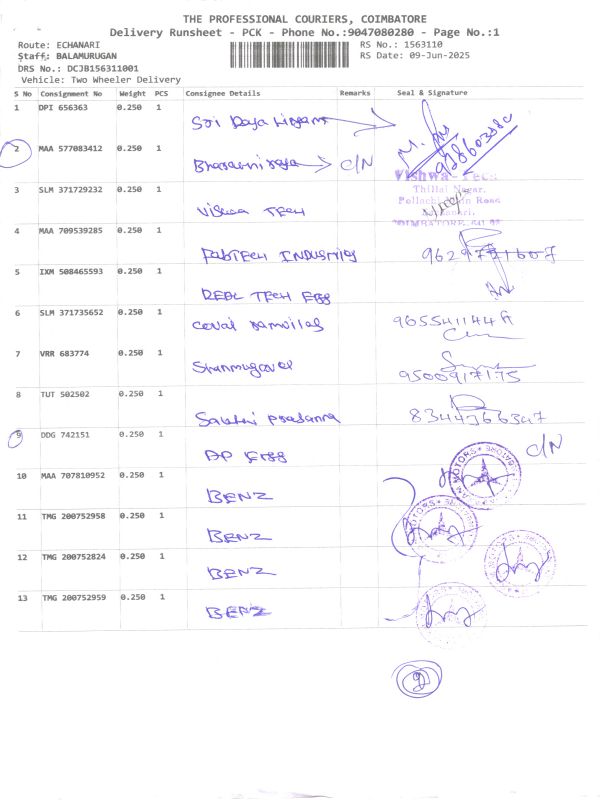 THE PROFESSIONAL COURIERS, COIMBATORE
Delivery Runsheet - PCK - Phone No.:9047080280 - Page No.:1
Route: ECHANARI RS No.: 1563110
Staff: BALAMURUGAN RS Date: 09-Jun-2025
DRS No.: DCJB156311001
Vehicle: Two Wheeler Delivery
S No Consignment No Weight PCS Consignee Details Remarks Seal & Signature
1 DPI 656363 0.250 1
Sri Daya
2 MAA 577083412 0.250 1
C/N
Vishwa-Tech
3 SLM 371729232 0.250 1
Thillai Nagar,
Pollachi Main Road
VISWA TECH
COIMBATORE
4 MAA 709539285 0.250 1
FabTech INDUSTRIES
5 IXM 508465593 0.250 1
REBL TECH Egg
6 SLM 371735652 0.250 1
7 VRR 683774 0.250 1
Shanmugavel
9500917175
8 TUT 502502 0.250 1
Sakthi prasanna
9 DDG 742151 0.250 1
C/N
AP Egg
10 MAA 707810952 0.250 1
BENZ
MOTORS
11 TMG 200752958 0.250 1
BENZ
MOTORS
12 TMG 200752824 0.250 1
BENZ
13 TMG 200752959 0.250 1
BENZ